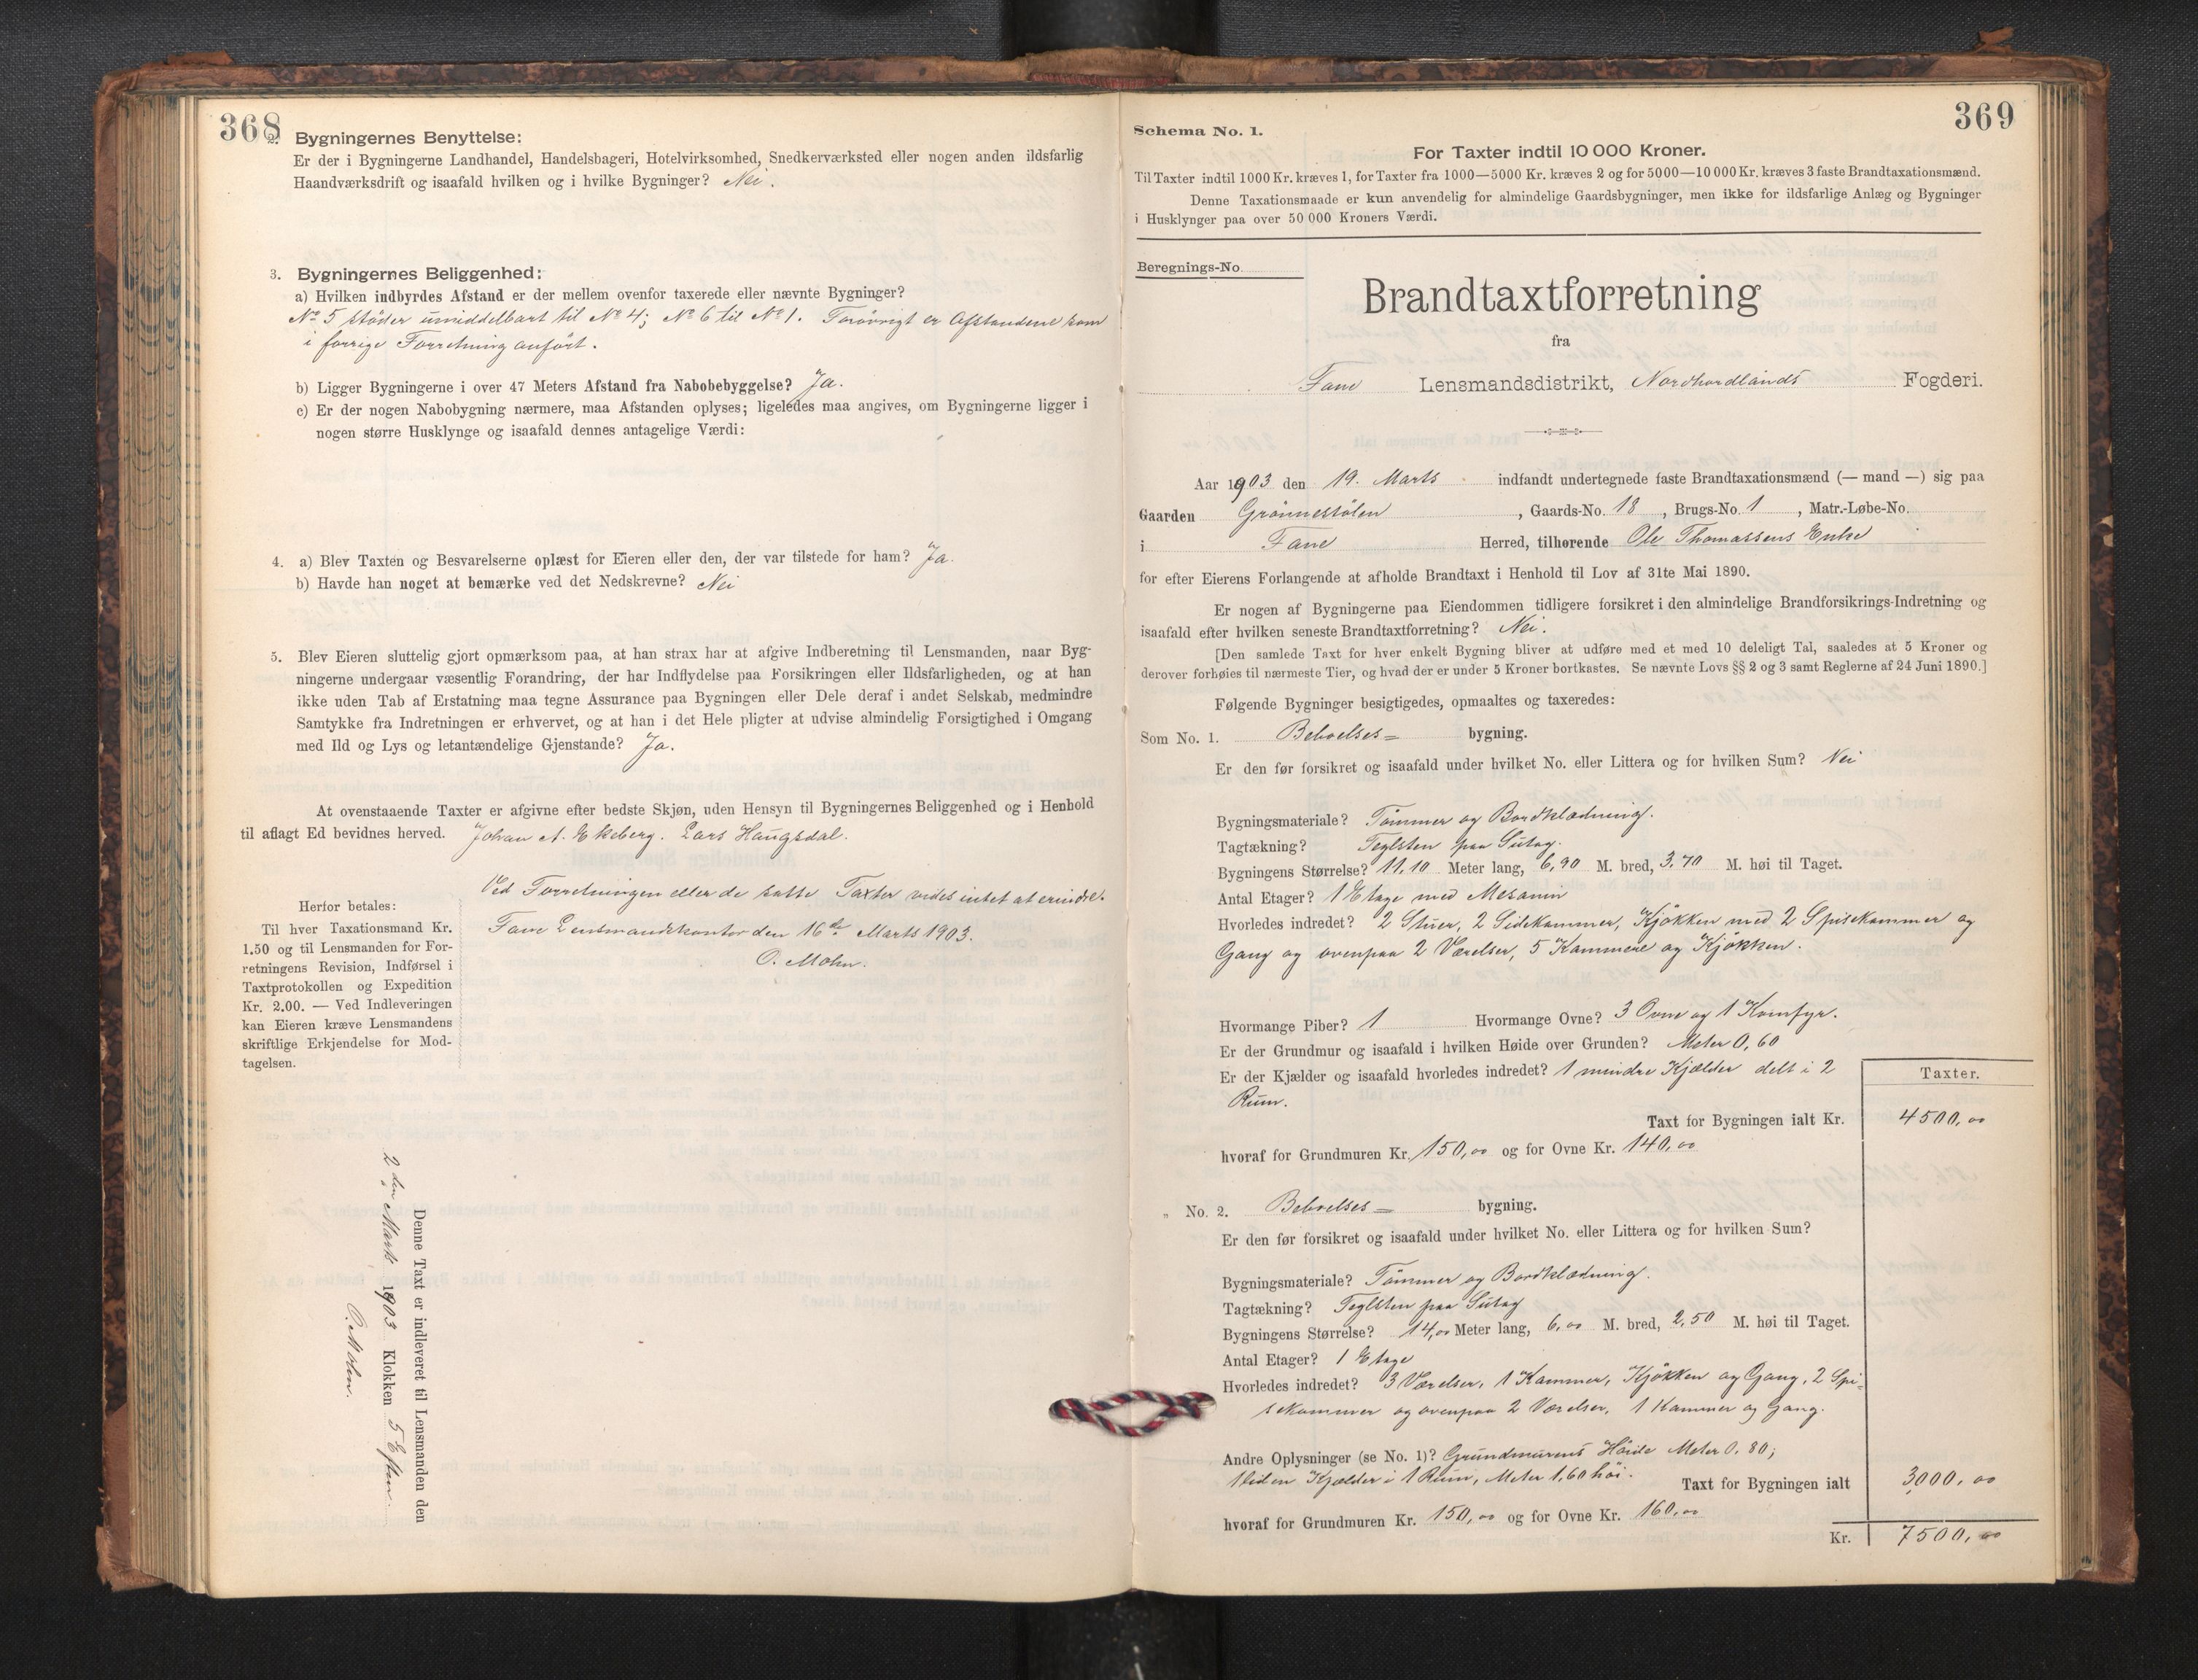 368
2. Bygningernes Benyttelse:
Er der i Bygningerne Landhandel, Handelsbageri, Hotelvirksomhed, Snedkerværksted eller nogen anden ildsfarlig
Haandværksdrift og isaafald hvilken og i hvilke Bygninger? Nei.
3. Bygningernes Beliggenhed:
a) Hvilken indbyrdes Afstand er der mellem ovenfor taxerede eller nævnte Bygninger?
No 5 støder umiddelbart til No 4; No 6 til No 1. Forøvrigt er Afstandene som
i forrige Forretning anført.
b) Ligger Bygningerne i over 47 Meters Afstand fra Nabobebyggelse? Ja.
c) Er der nogen Nabobygning nærmere, maa Afstanden oplyses; ligeledes maa angives, om Bygningerne ligger i
nogen større Husklynge og isaafald dennes antagelige Værdi:
4. a) Blev Taxten og Besvarelserne oplæst for Eieren eller den, der var tilstede for ham? Ja.
b) Havde han noget at bemærke ved det Nedskrevne? Nei
5. Blev Eieren sluttelig gjort opmærksom paa, at han strax har at afgive Indberetning til Lensmanden, naar Byg-
ningerne undergaar væsentlig Forandring, der har Indflydelse paa Forsikringen eller Ildsfarligheden, og at han
ikke uden Tab af Erstatning maa tegne Assurance paa Bygningen eller Dele deraf i andet Selskab, medmindre
Samtykke fra Indretningen er erhvervet, og at han i det Hele pligter at udvise almindelig Forsigtighed i Omgang
med Ild og Lys og letantændelige Gjenstande? Ja.
At ovenstaaende Taxter er afgivne efter bedste Skjøn, uden Hensyn til Bygningernes Beliggenhed og i Henhold
til aflagt Ed bevidnes herved. Johan A. Ekeberg. Lars Haugsdal.
Ved Forretningen eller de satte Taxter vides intet at erindre.
Fane Lensmandskontor den 16de Marts 1903.
O. Mohn.
Herfor betales:
Til hver Taxationsmand Kr.
1.50 og til Lensmanden for For-
retningens Revision, Indførsel i
Taxtprotokollen og Expedition
Kr. 2.00. — Ved Indleveringen
kan Eieren kræve Lensmandens
skriftlige Erkjendelse for Mod-
tagelsen.
Denne Taxt er indleveret til Lensmanden den
2den Marts 1903 Klokken 5 Eftm.
O. Mohn.
369
Schema No. 1.
For Taxter indtil 10 000 Kroner.
Til Taxter indtil 1000 Kr. kræves 1, for Taxter fra 1000—5000 Kr. kræves 2 og for 5000—10 000 Kr. kræves 3 faste Brandtaxationsmænd.
Denne Taxationsmaade er kun anvendelig for almindelige Gaardsbygninger, men ikke for ildsfarlige Anlæg og Bygninger
i Husklynger paa over 50 000 Kroners Værdi.
Beregnings-No.
Brandtaxtforretning
fra
Fane Lensmandsdistrikt, Nordhordlands Fogderi.
Aar 1903 den 19. Marts indfandt undertegnede faste Brandtaxationsmænd (— mand —) sig paa
Gaarden Grønnestølen, Gaards-No. 18, Brugs-No. 1, Matr.-Løbe-No.
i Fane Herred, tilhørende Ole Thomassens Enke
for efter Eierens Forlangende at afholde Brandtaxt i Henhold til Lov af 31te Mai 1890.
Er nogen af Bygningerne paa Eiendommen tidligere forsikret i den almindelige Brandforsikrings-Indretning og
isaafald efter hvilken seneste Brandtaxtforretning? Nei.
[Den samlede Taxt for hver enkelt Bygning bliver at udføre med et med 10 deleligt Tal, saaledes at 5 Kroner og
derover forhøies til nærmeste Tier, og hvad der er under 5 Kroner bortkastes. Se nævnte Lovs §§ 2 og 3 samt Reglerne af 24 Juni 1890.]
Følgende Bygninger besigtigedes, opmaaltes og taxeredes:
Som No. 1. Beboelses= bygning.
Er den før forsikret og isaafald under hvilket No. eller Littera og for hvilken Sum? Nei
Bygningsmateriale? Tømmer og Bordklædning.
Tagtækning? Teglsten paa Sutag.
Bygningens Størrelse? 11,10 Meter lang, 6,90 M. bred, 3,70 M. høi til Taget.
Antal Etager? 1 Etage med Mesanin
Hvorledes indredet? 2 Stuer, 2 Sidekammer, Kjøkken med 2 Spisekammer og
Gang og ovenpaa 2 Værelser, 5 Kammere og Kjøkken.
Hvormange Piber? 1 Hvormange Ovne? 3 Ovne og 1 Komfyr.
Er der Grundmur og isaafald i hvilken Høide over Grunden? Meter 0,60
Er der Kjælder og isaafald hvorledes indredet? 1 mindre Kjælder delt i 2
Rum.
Taxter.
Taxt for Bygningen ialt Kr. 4500,00
hvoraf for Grundmuren Kr. 150,00 og for Ovne Kr. 140,00
„ No. 2. Beboelses= bygning.
Er den før forsikret og isaafald under hvilket No. eller Littera og for hvilken Sum?
Bygningsmateriale? Tømmer og Bordklædning.
Tagtækning? Teglsten paa Sutag
Bygningens Størrelse? 14,00 Meter lang, 6,00 M. bred, 2,50 M. høi til Taget.
Antal Etager? 1 Etage
Hvorledes indredet? 3 Værelser, 1 Kammer, Kjøkken og Gang, 2 Spi-
sekammer og ovenpaa 2 Værelser, 1 Kammer og Gang.
Andre Oplysninger (se No. 1)? Grundmurens Høide Meter 0,80;
1 liden Kjælder i 1 Rum, Meter 1,60 høi. Taxt for Bygningen ialt 3000,00
hvoraf for Grundmuren Kr. 150,00 og for Ovne Kr. 160,00
Kr. 7500,00